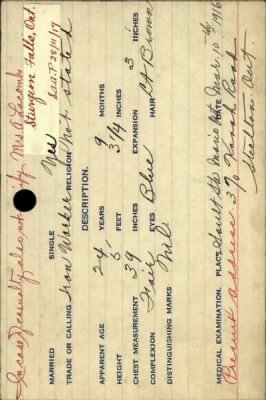 In case of casualty also notify Mrs. A. Lacomb
Sturgeon Falls, Ont.
MARRIED SINGLE Yes
TRADE OR CALLING Iron Worker RELIGION Not stated
DESCRIPTION.
APPARENT AGE 24 YEARS 9 MONTHS
HEIGHT 5 FEET 3 1/4 INCHES
CHEST MEASUREMENT 39 INCHES EXPANSION 3 INCHES
COMPLEXION Fair EYES Blue HAIR Lt Brown
DISTINGUISHING MARKS Nil
MEDICAL EXAMINATION. PLACE Sault Ste Marie Ont DATE Mar. 10th 1916
Present address
Ont.